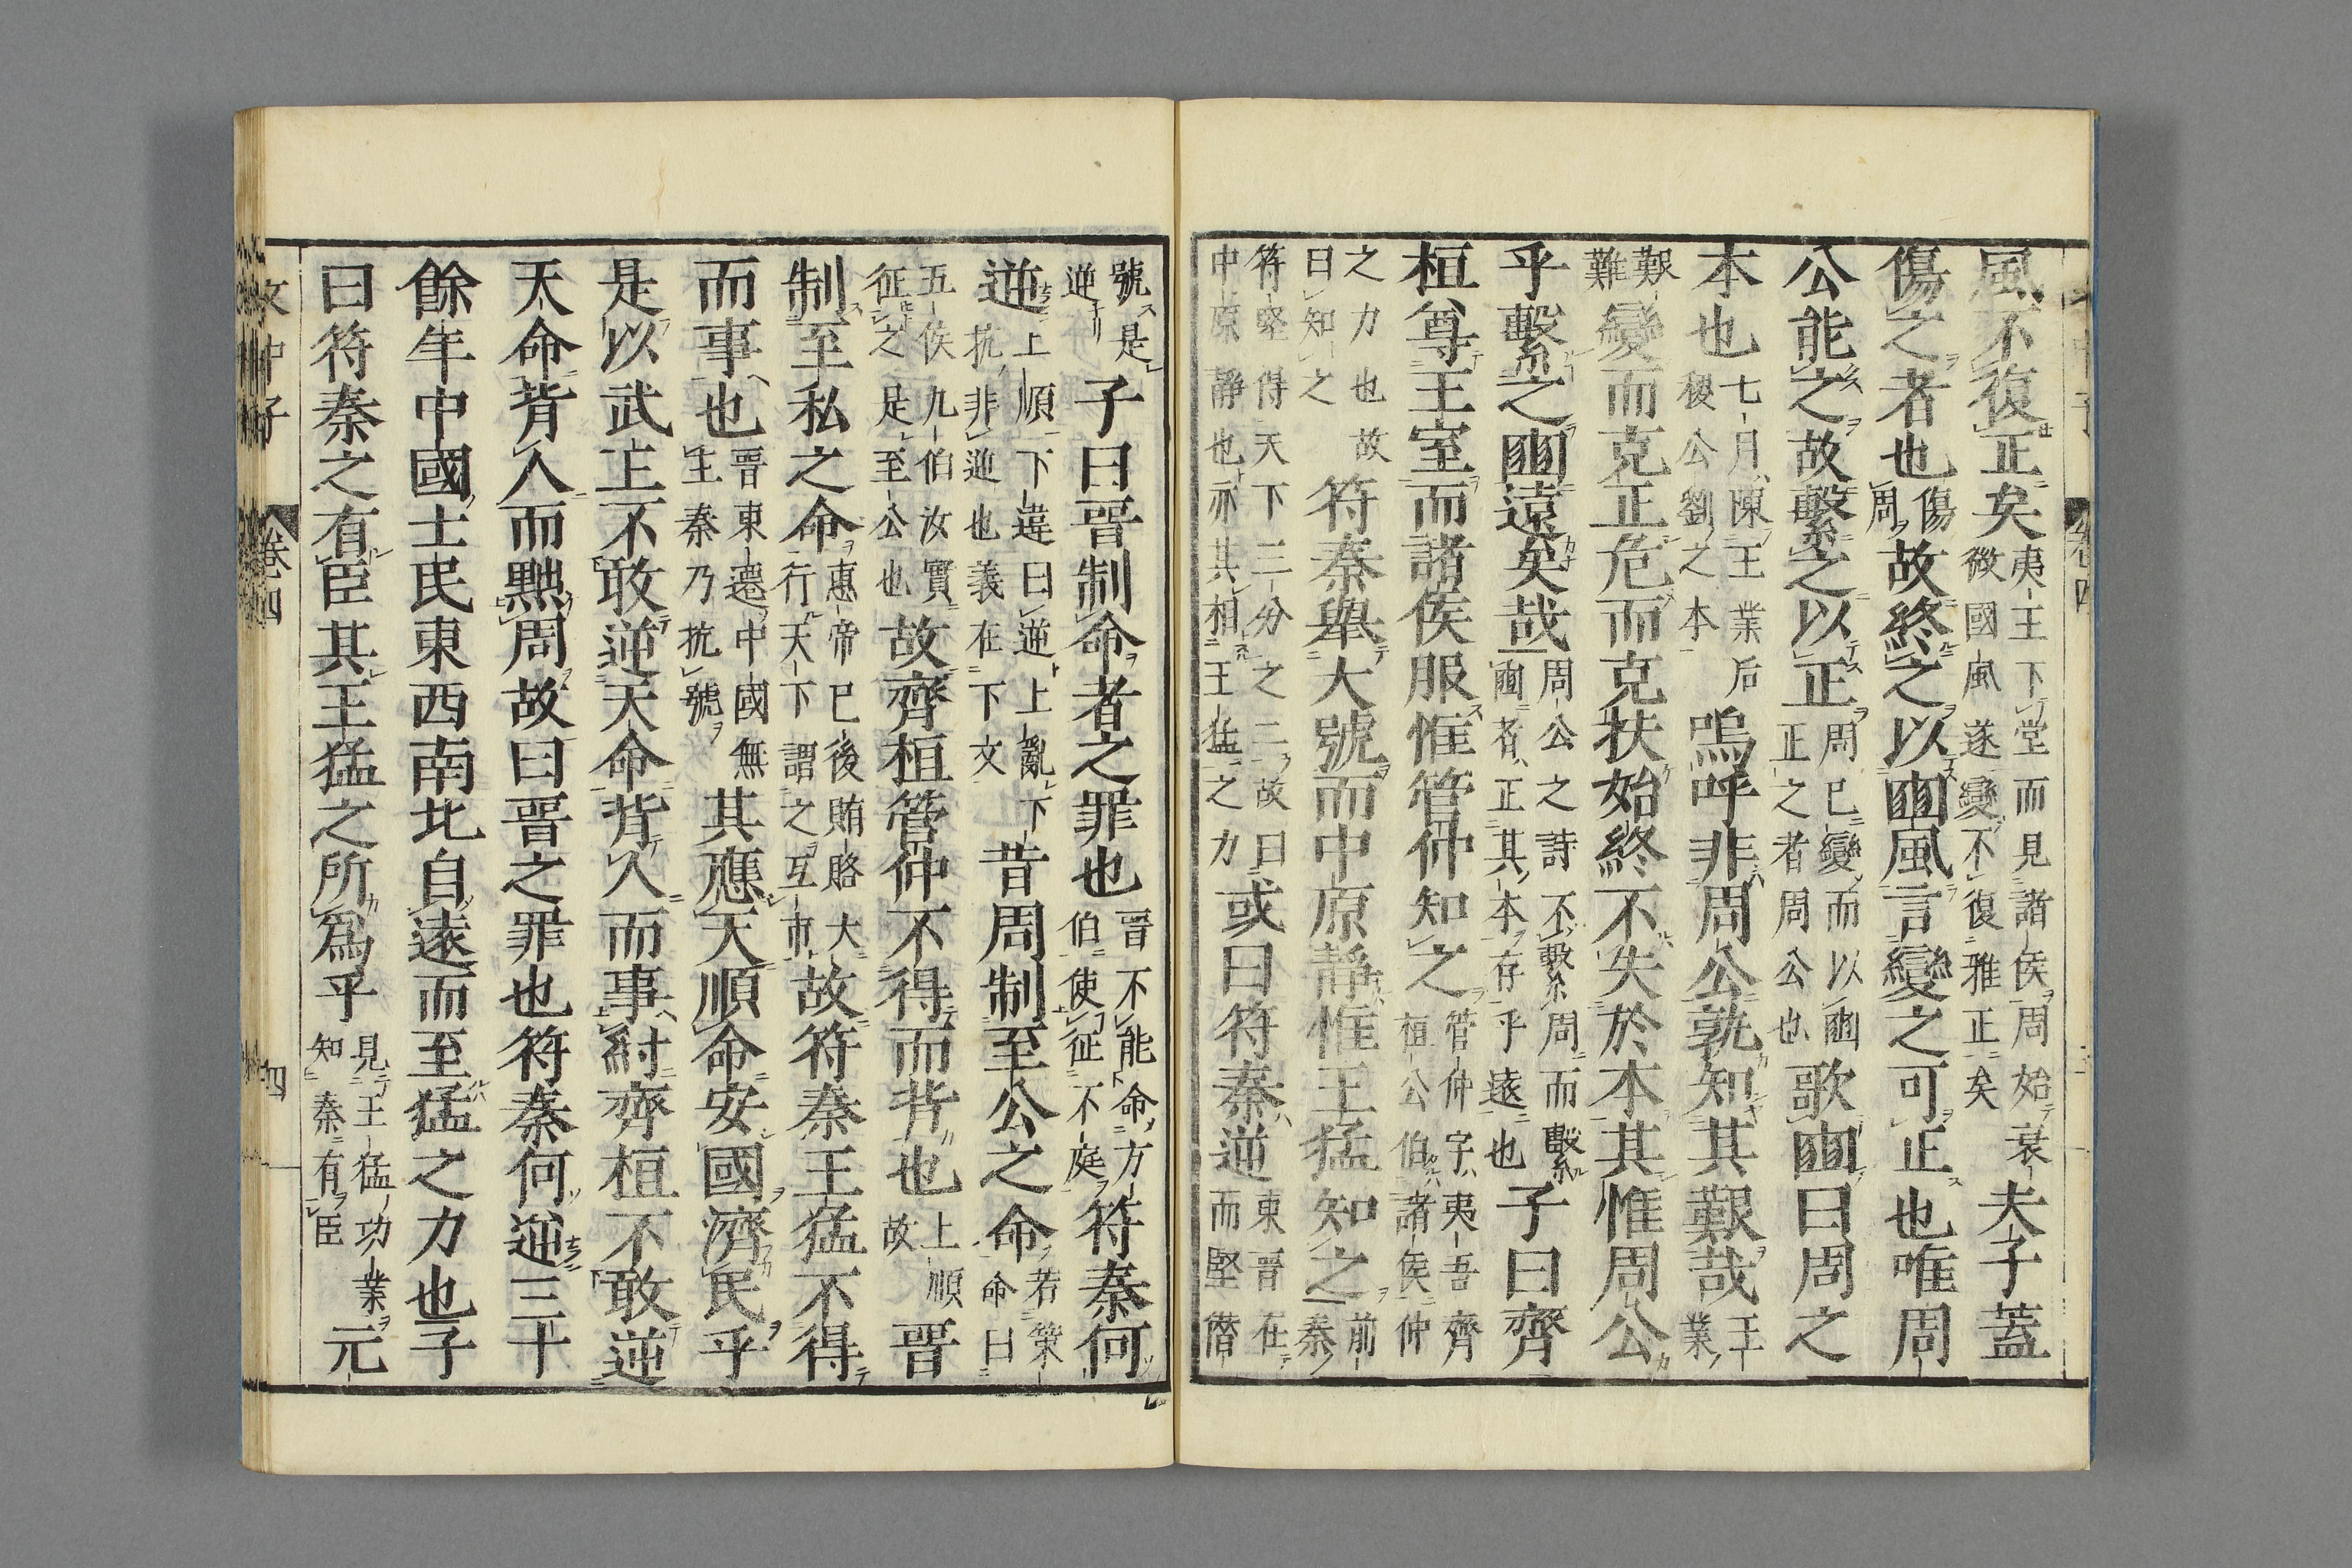 風不復正矣夷王下堂而見諸侯周始衰微國風遂變不復雅正矣夫子蓋
傷之者也傷周故終之以豳風言變之可正也唯周
公能之故繫之以正周已變而以豳正之者周公也歌豳曰周之
本也七月陳王業后稷公劉之本嗚呼非周公孰知其艱哉王業
艱難變而克正危而克扶始終不失於本其惟周公
乎繫之豳遠矣哉周公之詩不繫周而繫豳者正其本存乎遠也子曰齊
桓尊王室而諸侯服惟管仲知之管仲字夷吾齊桓公伯諸侯仲
之力也故曰知之符秦舉大號而中原靜惟王猛知之前秦
符堅得天下三分之二故曰中原靜也亦其相王猛之力或曰符秦逆東晉在而堅僭
號是逆子曰晉制命者之罪也晉不能命方伯使征不庭符秦何
逆上順下違曰逆上亂下抗非逆也義在下文昔周制至公之命若策命曰
五侯九伯汝實征之是至公也故齊桓管仲不得而背也上順故晉
制至私之命惠帝已後賄賂大行天下謂之互市故符秦王猛不得
而事也晉東遷中國無主秦乃抗號其應天順命安國濟民乎
是以武王不敢逆天命背人而事紂齊桓不敢逆
天命背人而黜周故曰晉之罪也符秦何逆三十
餘年中國士民東西南北自遠而至猛之力也子
曰符秦之有臣其王猛之所爲乎見王猛功業知秦有臣元
文中子
卷四
四